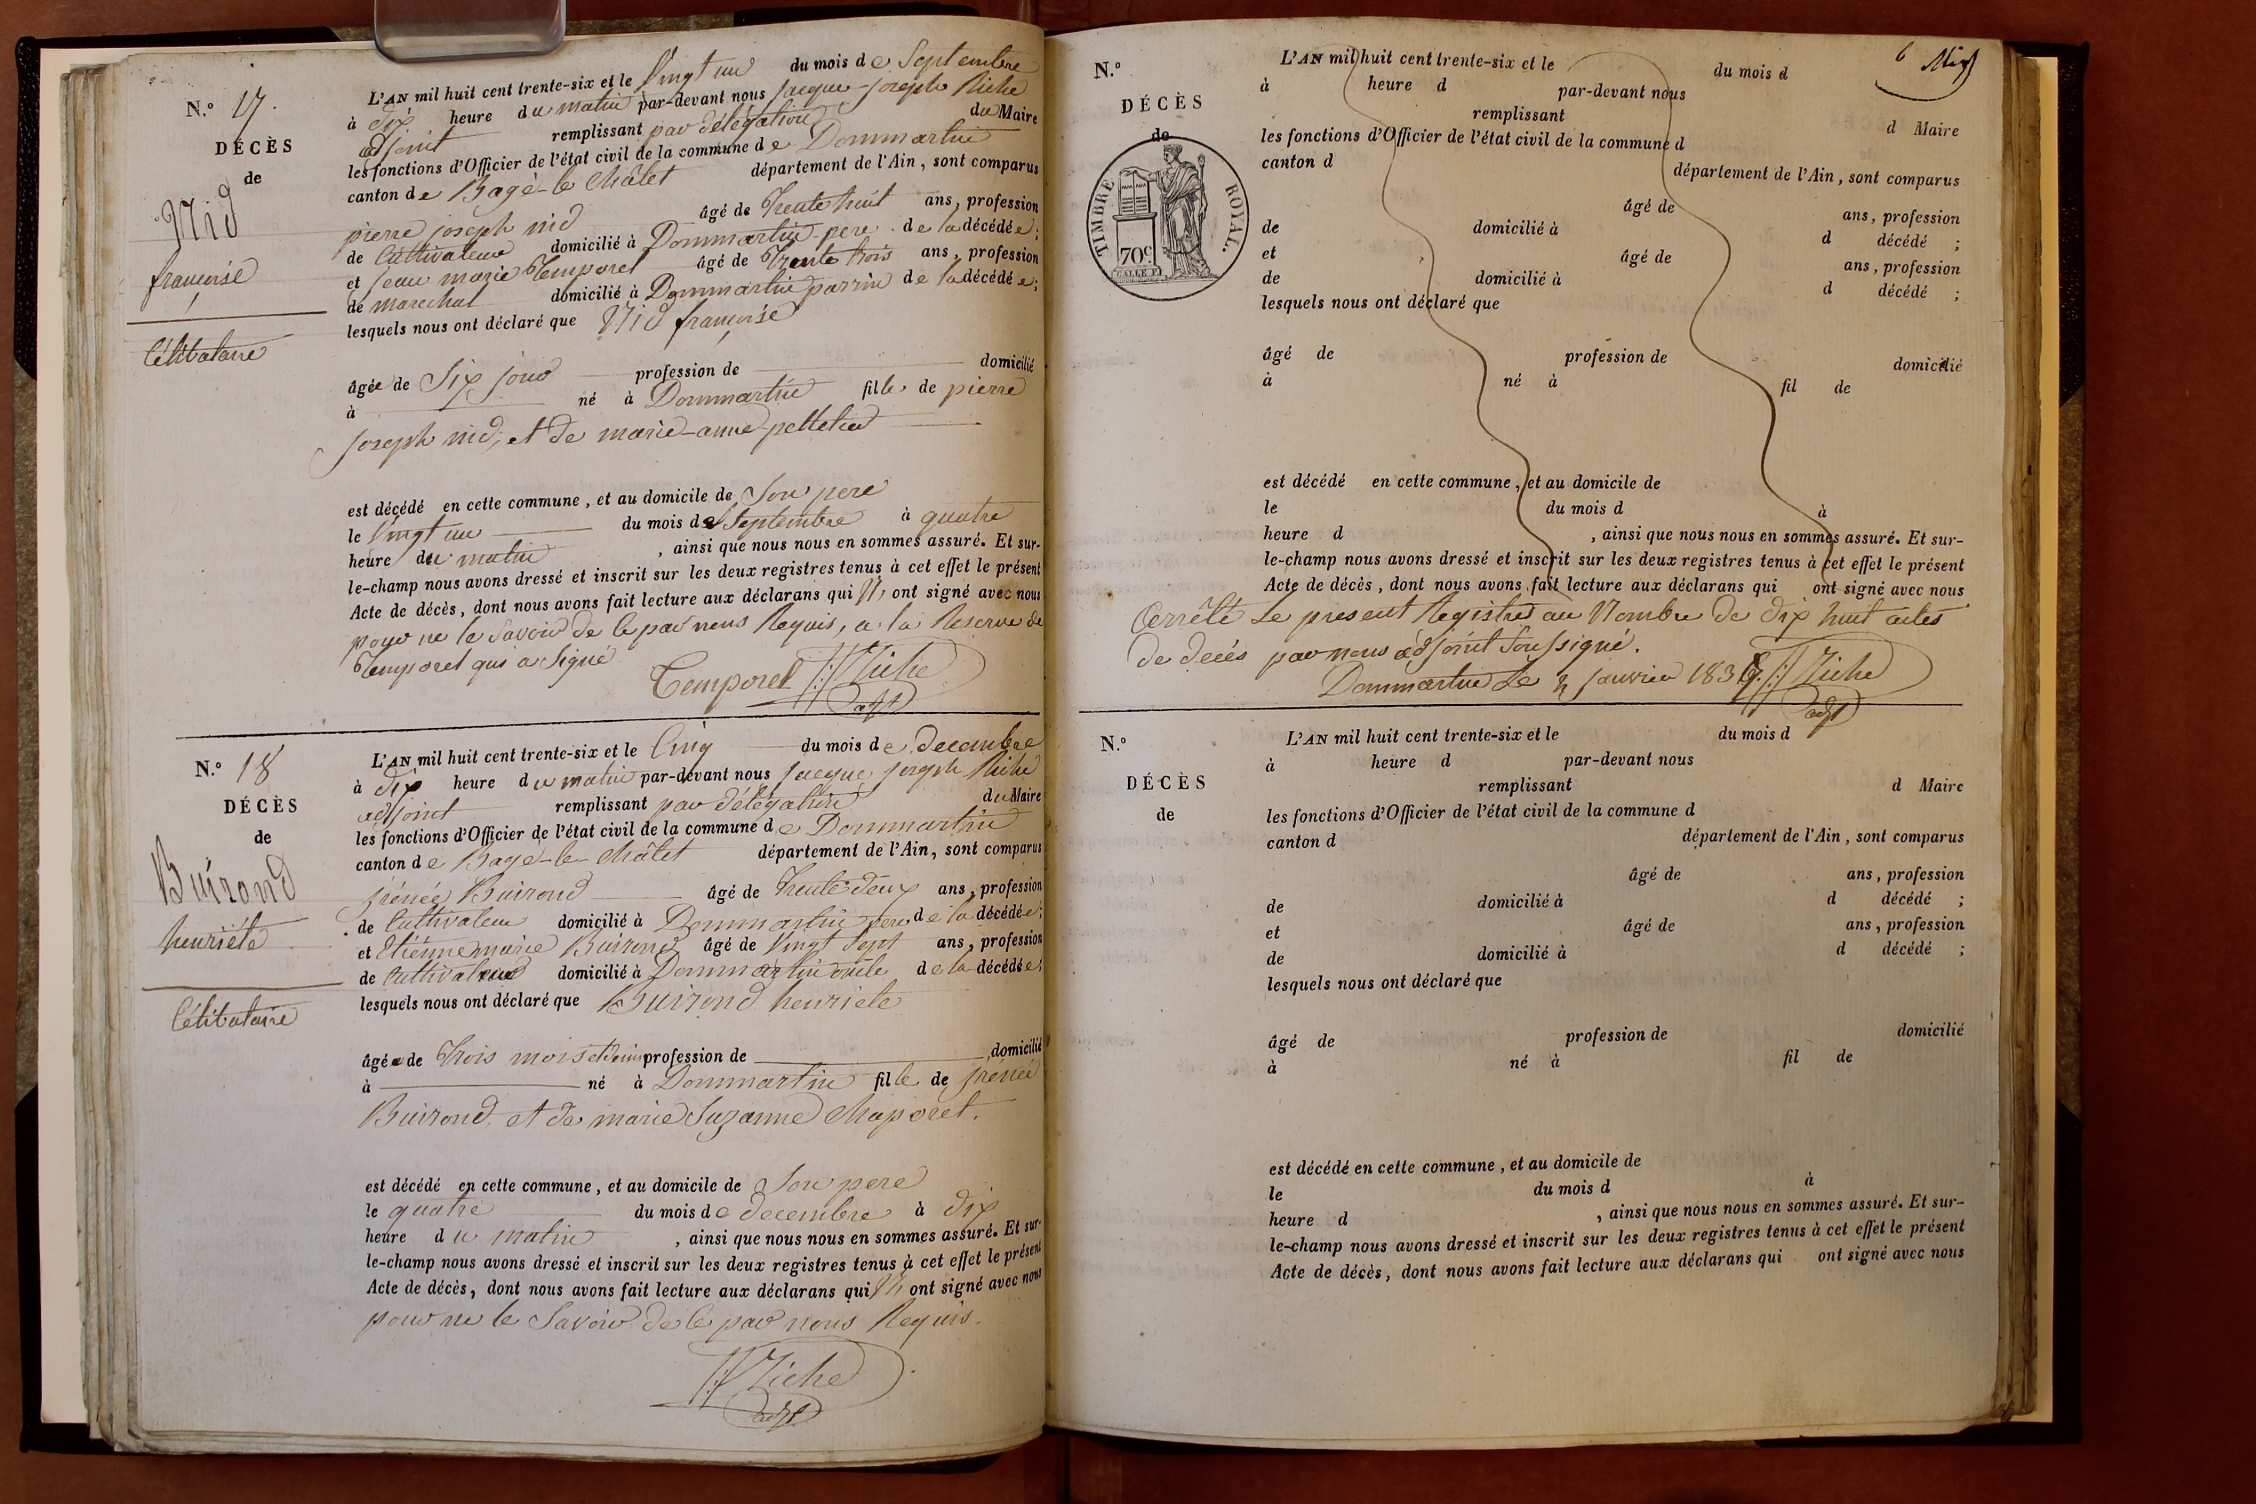 N.° 17.
DÉCÈS
de
Nid
françoise
Célibataire
L'AN mil huit cent trente-six et le Vingt un du mois de Septembre
à dix heure du matin par-devant nous jacque-joseph Riche
adjoint remplissant par délégation du Maire
les fonctions d'Officier de l'état civil de la commune de Dommartin
canton de Bagé-le-Châtel département de l'Ain, sont comparus
pierre joseph nid âgé de Trente huit ans, profession
de Cultivateur domicilié à Dommartin pere de la décédée;
et jean marie Temporel âgé de Trente trois ans, profession
de marechal domicilié à Dommartin parrin de la décédée;
lesquels nous ont déclaré que Nid françoise
âgée de Six jour profession de domicilié
à né à Dommartin fille de pierre
joseph nid, et de marie-anne pelletier
est décédé en cette commune, et au domicile de Son pere
le Vingt un du mois de Septembre à quatre
heure du matin, ainsi que nous nous en sommes assuré. Et sur-
le-champ nous avons dressé et inscrit sur les deux registres tenus à cet effet le présent
Acte de décès, dont nous avons fait lecture aux déclarans qui N'ont signé avec nous
pour ne le Savoir de ce par nous Requis, a la Reserve de
Temporel qui a Signé
Temporel JJ Riche
adjt
N.° 18
DÉCÈS
de
Buirond
henriéte
Célibataire
L'AN mil huit cent trente-six et le Cinq du mois de decembre
à dix heure du matin par-devant nous jacque joseph Riche
adjoint remplissant par délégation du Maire
les fonctions d'Officier de l'état civil de la commune de Dommartin
canton de Bagé-le-Châtel département de l'Ain, sont comparus
jrénée Buirond âgé de Trente deux ans, profession
de Cultivateur domicilié à Dommartin pere de la décédée;
et Etienne marie Buirond âgé de Vingt Sept ans, profession
de Cultivateur domicilié à Dommartin oncle de la décédée;
lesquels nous ont déclaré que Buirond henriete
âgée de Trois mois et demi profession de domicilié
à né à Dommartin fille de jrénée
Buirond, et de marie Suzanne Chaporel.
est décédé en cette commune, et au domicile de Son pere
le quatre du mois de decembre à dix
heure du matin, ainsi que nous nous en sommes assuré. Et sur-
le-champ nous avons dressé et inscrit sur les deux registres tenus à cet effet le présent
Acte de décès, dont nous avons fait lecture aux déclarans qui N'ont signé avec nous
pour ne le Savoir de ce par nous Requis.
JJ Riche
adjt
6
N.°
DÉCÈS
de
TIMBRE ROYAL.
70c
L'AN mil huit cent trente-six et le du mois d
à heure d par-devant nous
remplissant d Maire
les fonctions d'Officier de l'état civil de la commune d
canton d département de l'Ain, sont comparus
âgé de ans, profession
de domicilié à d décédé ;
et âgé de ans, profession
de domicilié à d décédé ;
lesquels nous ont déclaré que
âgé de profession de domicilié
à né à fil de
est décédé en cette commune, et au domicile de
le du mois d à
heure d , ainsi que nous nous en sommes assuré. Et sur-
le-champ nous avons dressé et inscrit sur les deux registres tenus à cet effet le présent
Acte de décès, dont nous avons fait lecture aux déclarans qui ont signé avec nous
Arrêté Le present Registre au Nombre de dix huit actes
de decés par nous adjoint Soussigné.
Dommartin Le janvier 1837. JJ Riche
adjt
N.°
DÉCÈS
de
L'AN mil huit cent trente-six et le du mois d
à heure d par-devant nous
remplissant d Maire
les fonctions d'Officier de l'état civil de la commune d
canton d département de l'Ain, sont comparus
âgé de ans, profession
de domicilié à d décédé ;
et âgé de ans, profession
de domicilié à d décédé ;
lesquels nous ont déclaré que
âgé de profession de domicilié
à né à fil de
est décédé en cette commune, et au domicile de
le du mois d à
heure d , ainsi que nous nous en sommes assuré. Et sur-
le-champ nous avons dressé et inscrit sur les deux registres tenus à cet effet le présent
Acte de décès, dont nous avons fait lecture aux déclarans qui ont signé avec nous